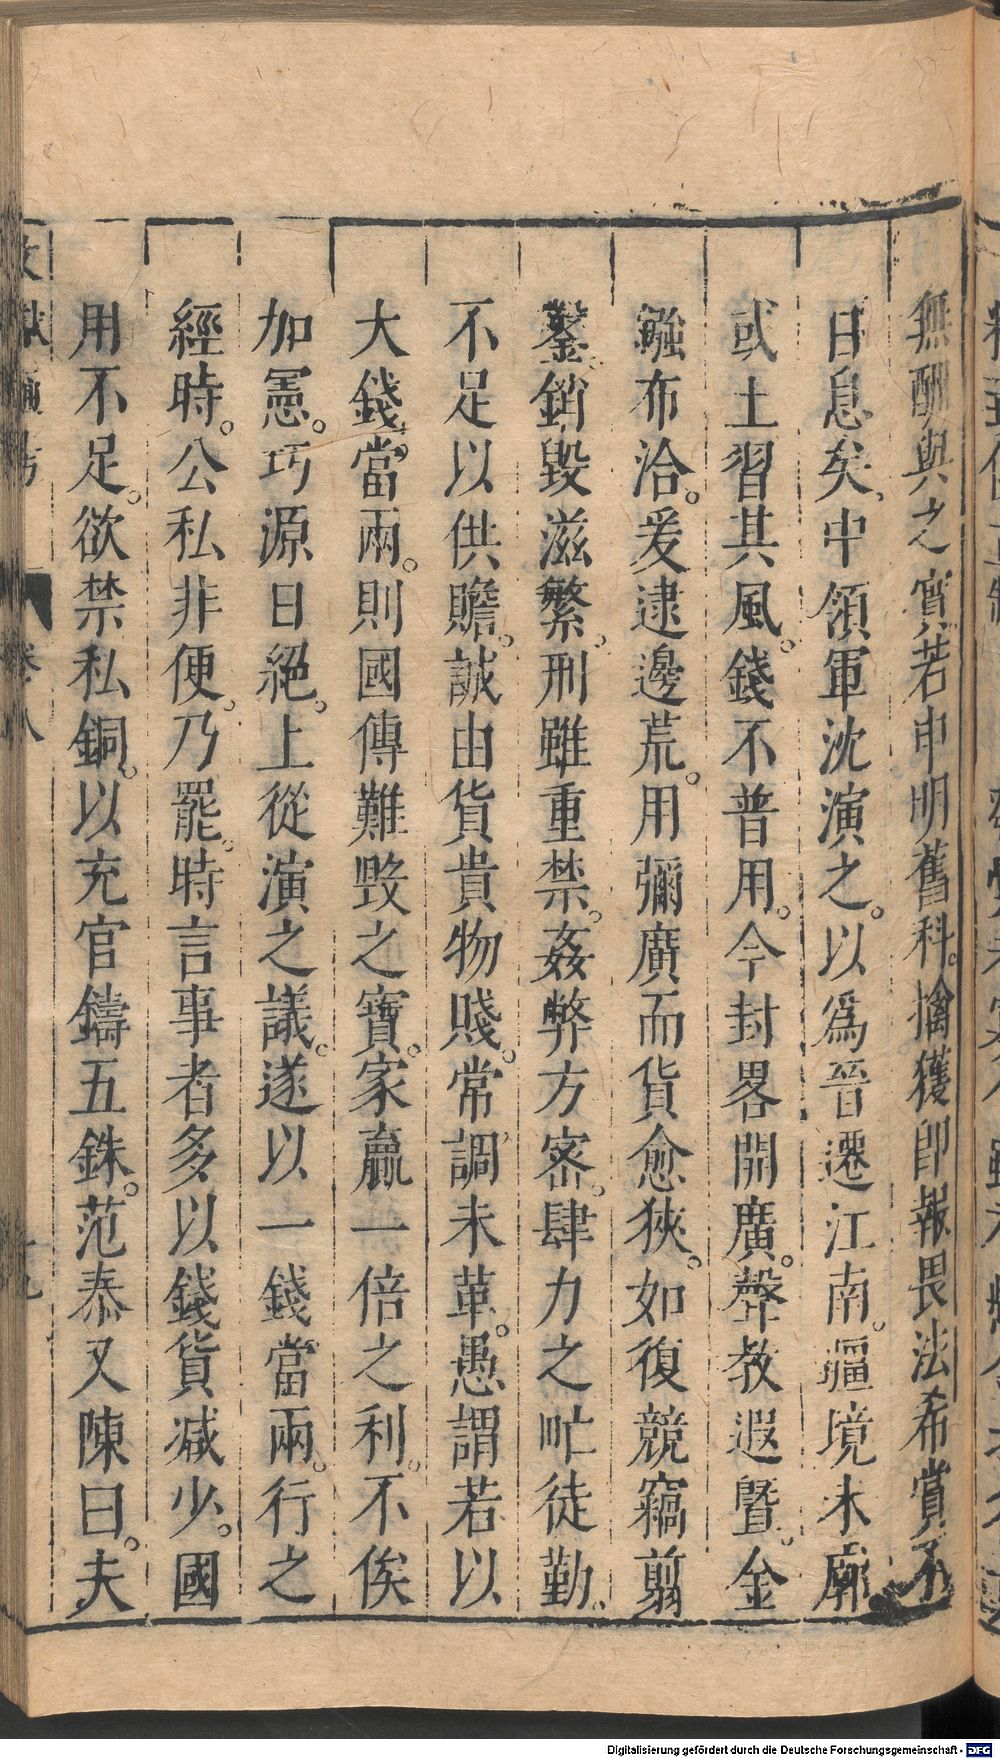 無酬與之實若申明舊科。擒獲卽報畏法希賞不
日息矣、中領軍沈演之。以爲晉遷江南。疆境未廓
或土習其風。錢不普用。今封畧開廣。聲教遐曁。金
鏹布洽。爰逮邊荒。用彌廣而貨愈狹。如復競竊剪
鑿、銷毀滋繁。刑雖重禁。姦弊方密。肆力之氓徒勤。
不足以供贍。誠由貨貴物賤。常調未革。愚謂若以
大錢。當兩。則國傳難毀之寶。家贏一倍之利。不俟
加憲。巧源日絕。上從演之議。遂以一錢當兩。行之
經時。公私非便。乃罷。時言事者多以錢貨減少。國
用不足。欲禁私銅。以充官鑄五銖。范泰又陳曰。夫
卷八
Digitalisierung gefördert durch die Deutsche Forschungsgemeinschaft - DFG